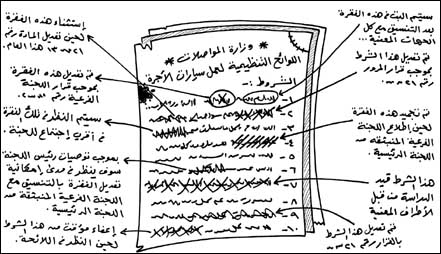 وزارة المواصلات
اللوائح التنظيمية لعمل سيارات الأجرة
الشروط :-
١-
٢-
٣-
٤-
٥-
٦-
٧-
٨-
٩-
١٠-
سيتم البت في هذه الفقرة
بعد التنسيق مع كل
الجهات المعنية ...
تم تعديل هذا الشرط
بموجب قرار المرور
رقم
تم تجميد هذه الفقرة
لحين اطلاع اللجنة
الفرعية المنبثقة من
اللجنة الرئيسية .
هذا الشرط قيد
الدراسة من قبل
الأطراف المعنية
تم تعديل هذا الشرط
بالقرار رقم
إستثناء هذه الفقرة
لحين تعديل المادة رقم
هذا العام .
تم تعديل هذه الفقرة
بموجب قرار اللجنة
الفرعية رقم
سيتم النظر في تلك الفقرة
في أقرب إجتماع للجنة
بموجب توصيات رئيس اللجنة
سوف ينظر في مدى إمكانية
تعديل الفقرة بالتنسيق مع
اللجنة الفرعية المنبثقة من
اللجنة الرئيسية .
إعفاء مؤقت من هذا الشرط
لحين النظر في اللائحة .